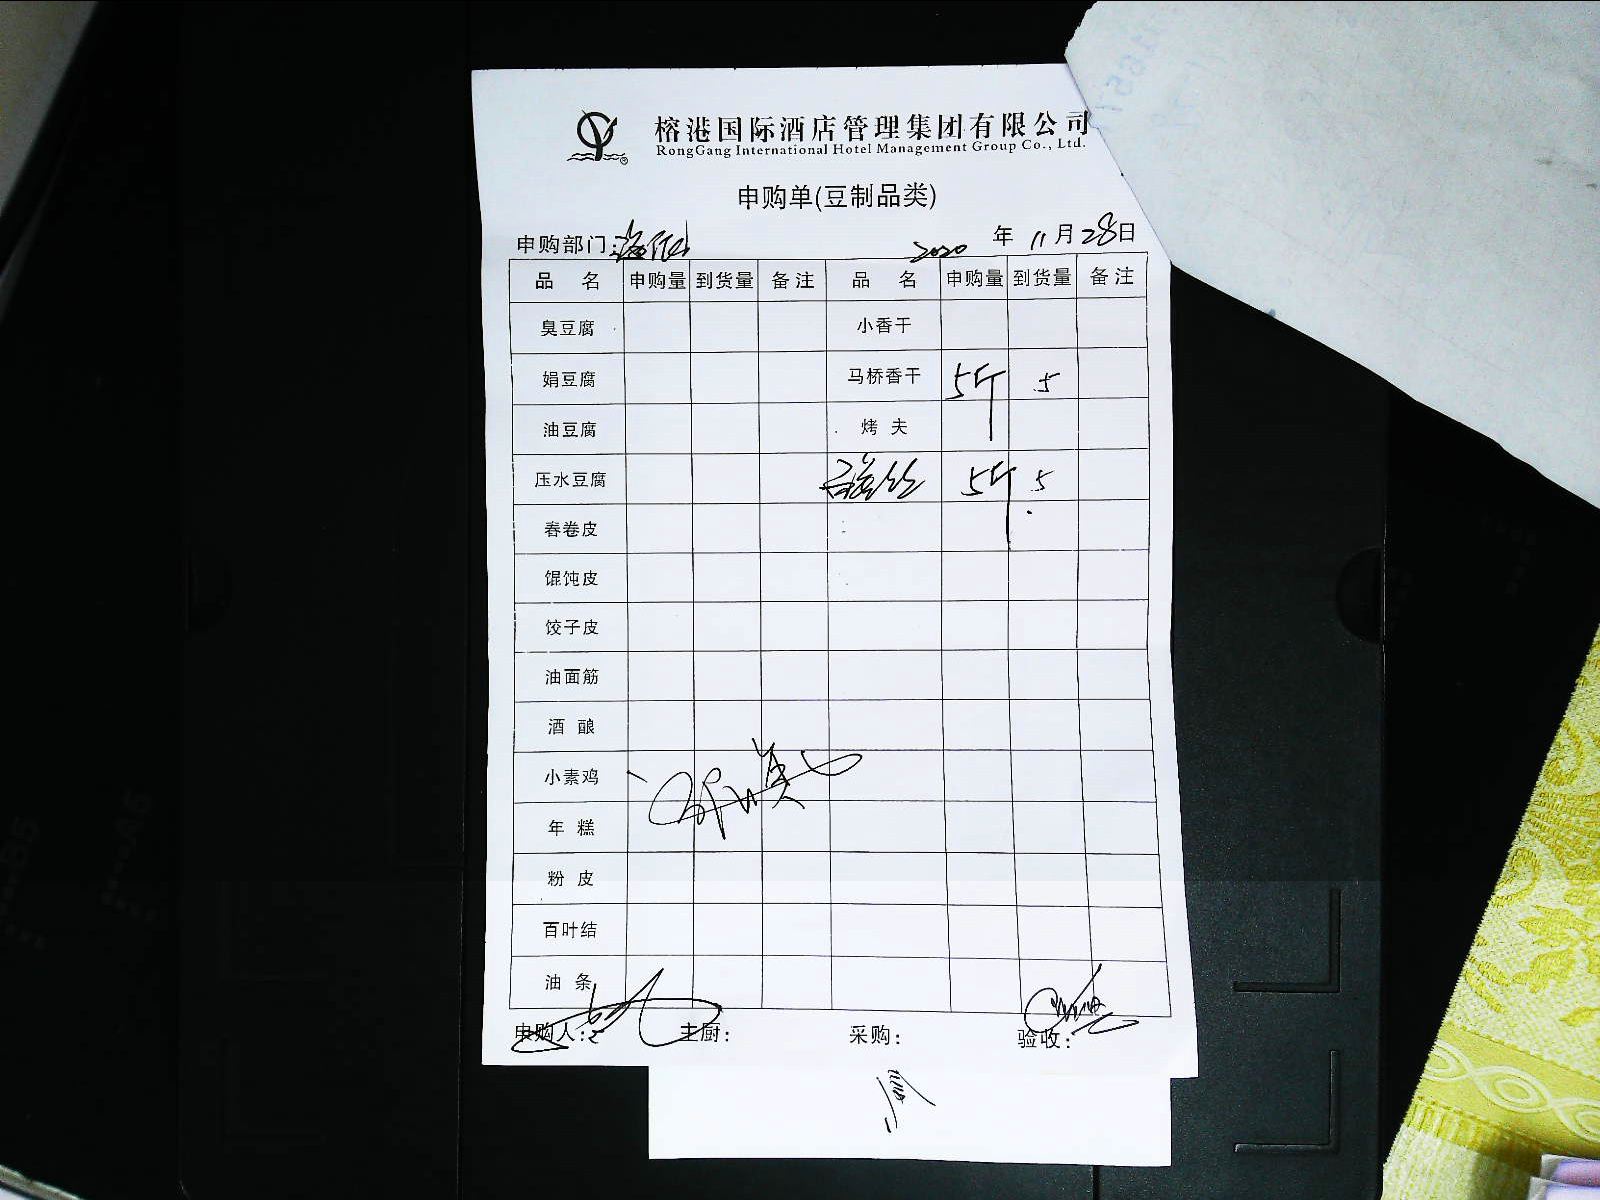 榕港国际酒店管理集团有限公司
RongGang International Hotel Management Group Co., Ltd.
申购单(豆制品类)
申购部门: 2020 年 11 月 28 日
品 名 申购量 到货量 备注 品 名 申购量 到货量 备注
臭豆腐 小香干
娟豆腐 马桥香干 5斤 5
油豆腐 烤夫
压水豆腐 5斤 5
春卷皮
馄饨皮
饺子皮
油面筋
酒酿
小素鸡
年糕
粉皮
百叶结
油条
申购人: 主厨: 采购: 验收: